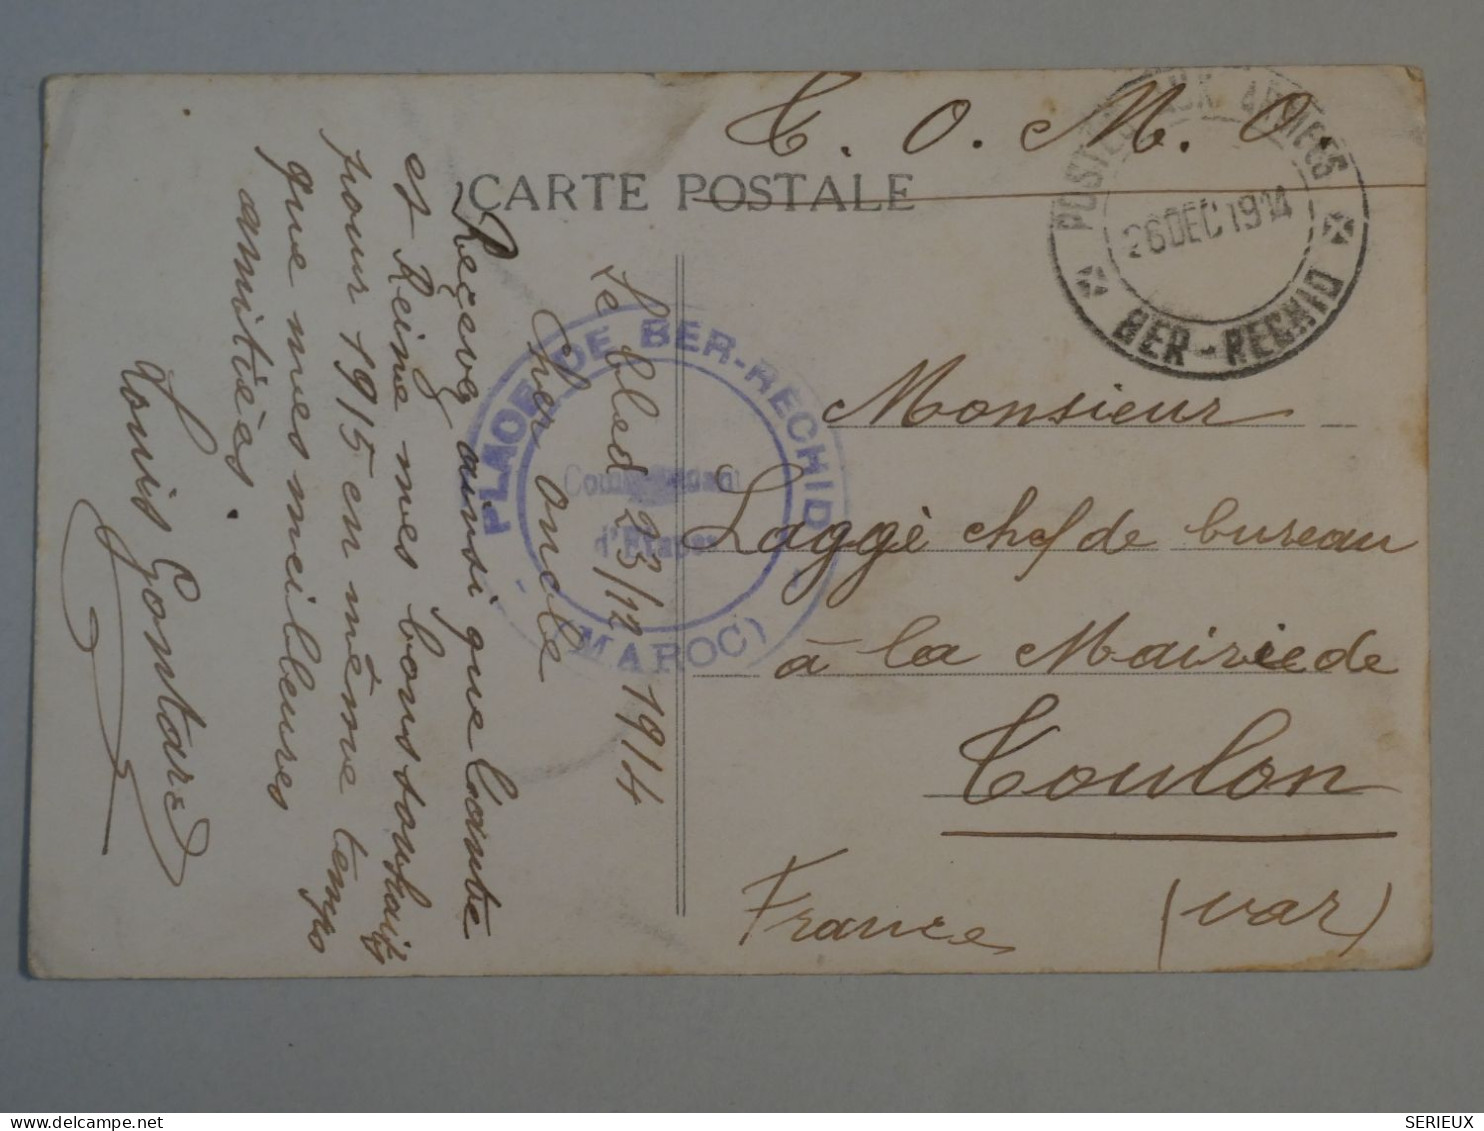 C. O. M. O.
CARTE POSTALE
POSTES AUX ARMEES
26 DEC 1914
BER-RECHID
PLACE DE BER-RECHID
d'Etapes
(MAROC)
Le Bled 23/12 1914
Cher oncle
Reçevez ainsi que tante
et Reine mes bons souhaits
pour 1915 en même temps
que mes meilleures
amitiés.
Louis Gontard
Monsieur
Laggé chef de bureau
à la Mairie de
Toulon
France (Var)
SERIEUX